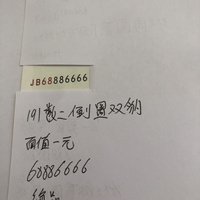 JB68886666
191数二倒置双豹
面值一元
68886666